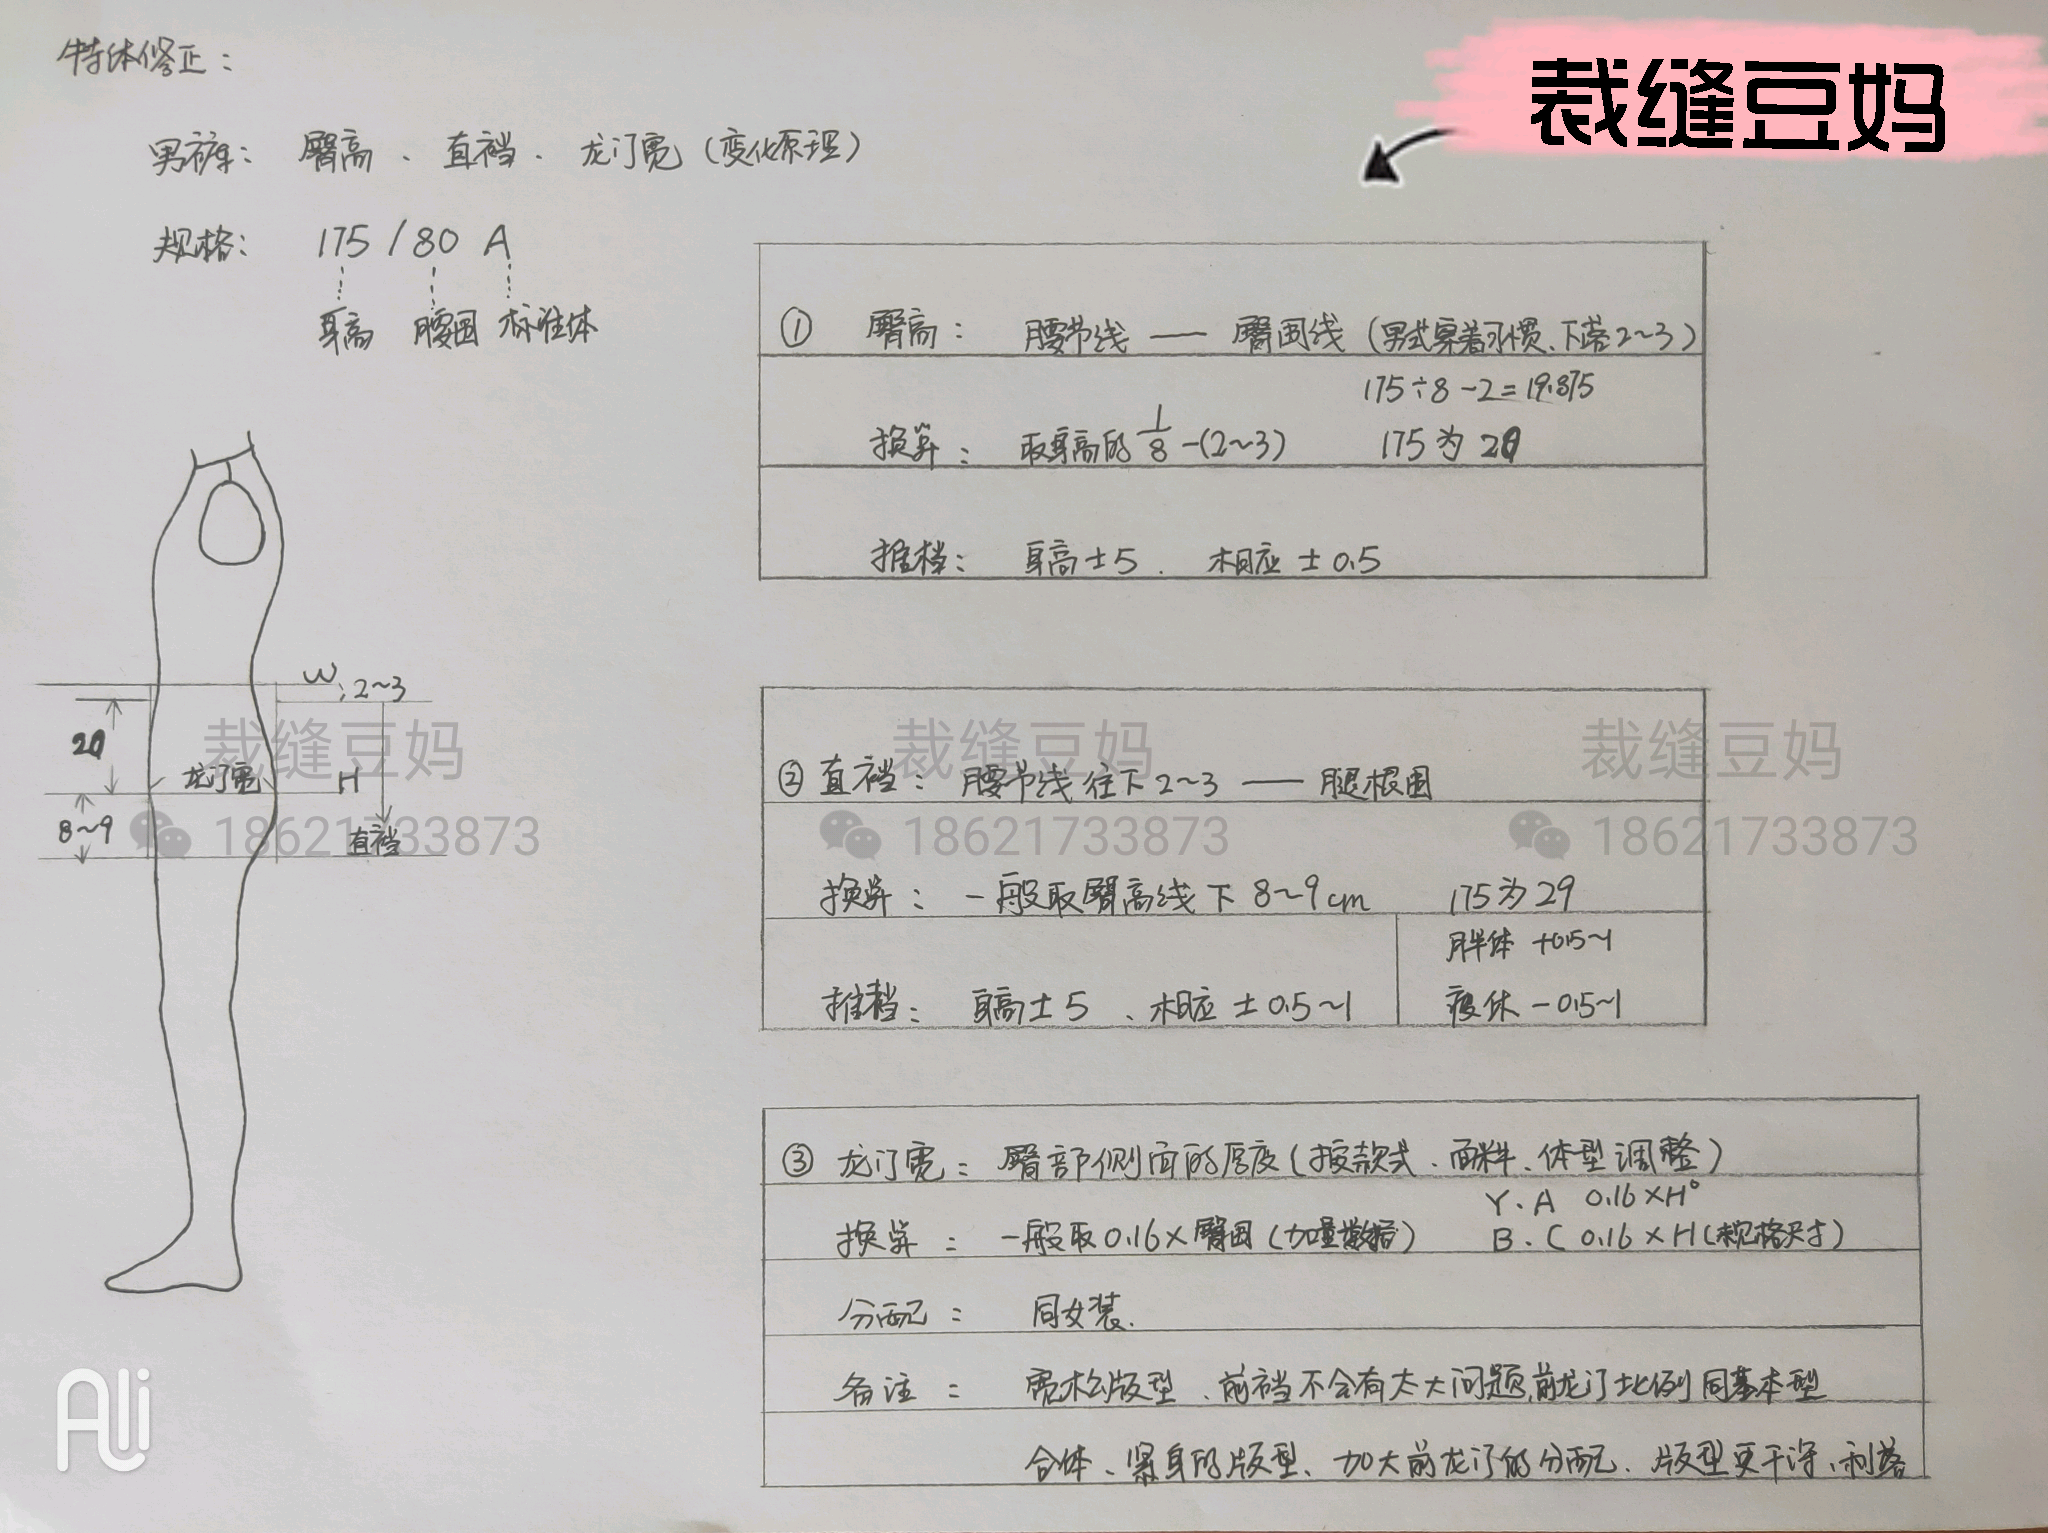 特体修正：
裁缝豆妈
男裤： 臀高、直裆、龙门宽（变化原理）
规格： 175 / 80 A
身高 腰围 标准体
① 臀高： 腰节线 —— 臀围线（男式穿着习惯、下落2~3）
175÷8-2=19.875
换算： 取身高的 1/8 -(2~3) 175为20
推档： 身高±5 、相应±0.5
W 2~3
20
龙门宽 H
8~9
直裆
裁缝豆妈 裁缝豆妈 裁缝豆妈
18621733873 18621733873 18621733873
② 直裆： 腰节线往下2~3 —— 腿根围
换算： 一般取臀高线下8~9cm 175为29
胖体 +0.5~1
推裆： 身高±5 、相应±0.5~1 瘦体 -0.5~1
③ 龙门宽： 臀部侧面的厚度（按款式、面料、体型调整）
Y.A 0.16×H°
换算： 一般取0.16×臀围（加量数据） B.C 0.16×H(规格尺寸)
分配： 同女装.
备注： 宽松版型、前裆不会有太大问题,前龙门比例同基本型
合体、紧身的版型、加大前龙门的分配、版型更干净、利落
Ali